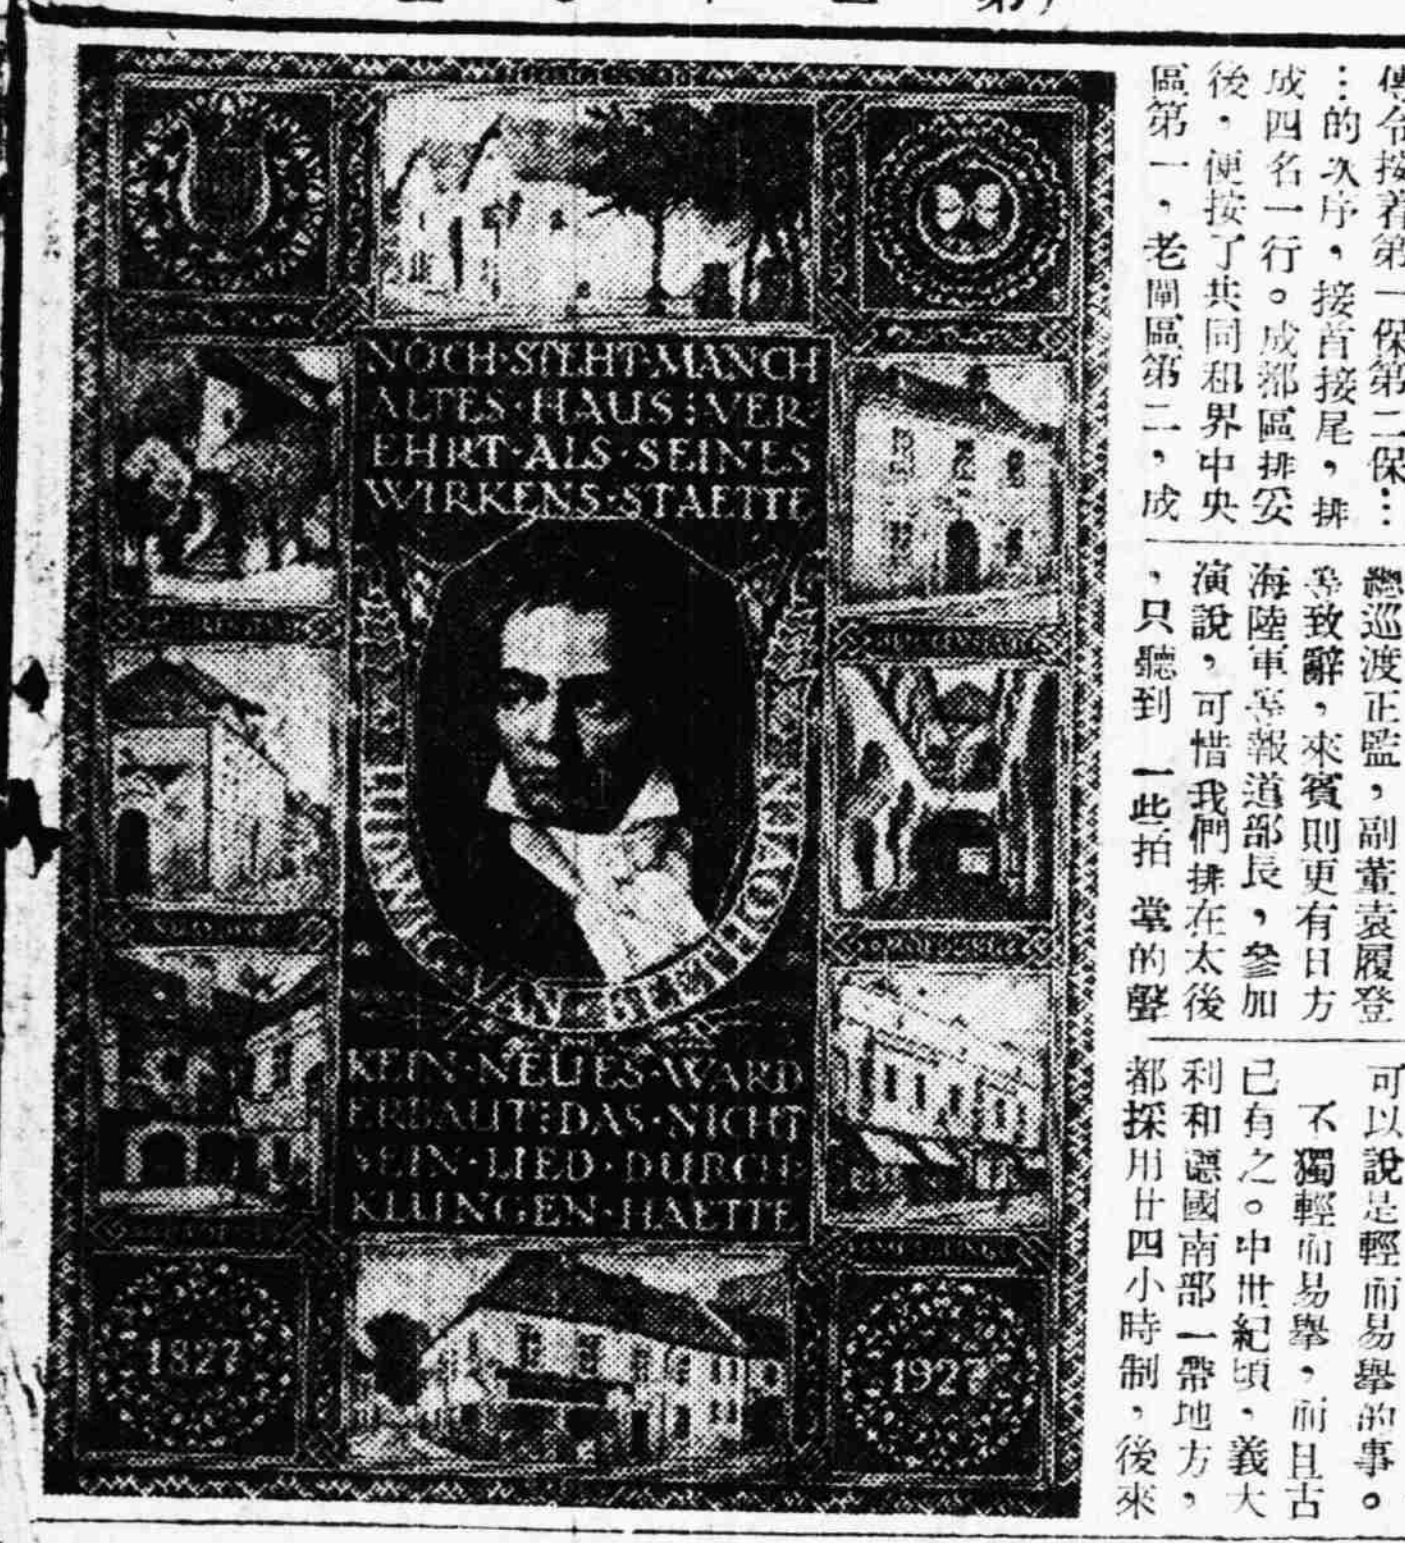 NOCH·STEHT·MANCH
ALTES·HAUS:VER:
EHRT·ALS·SEINES
WIRKENS·STAETTE
LUDWIG·VAN·BEETHOVEN
KEIN·NEUES·WARD
ERBAUT:DAS·NICHT
SEIN·LIED·DURCH:
KLUNGEN·HAETTE
1827
1927
傳令按着第一保第二保…
…的次序，接首接尾，排
成四名一行。成都區排妥
後，便按了共同租界中央
區第一，老閘區第二，成
總巡渡正監，副董袁履登
等致辭，來賓則更有日方
海陸軍等報道部長，參加
演說，可惜我們排在太後
，只聽到 一些拍 掌的聲
可以說是輕而易舉的事。
不獨輕而易舉，而且古
已有之。中世紀頃，義大
利和德國南部一帶地方，
都採用廿四小時制，後來